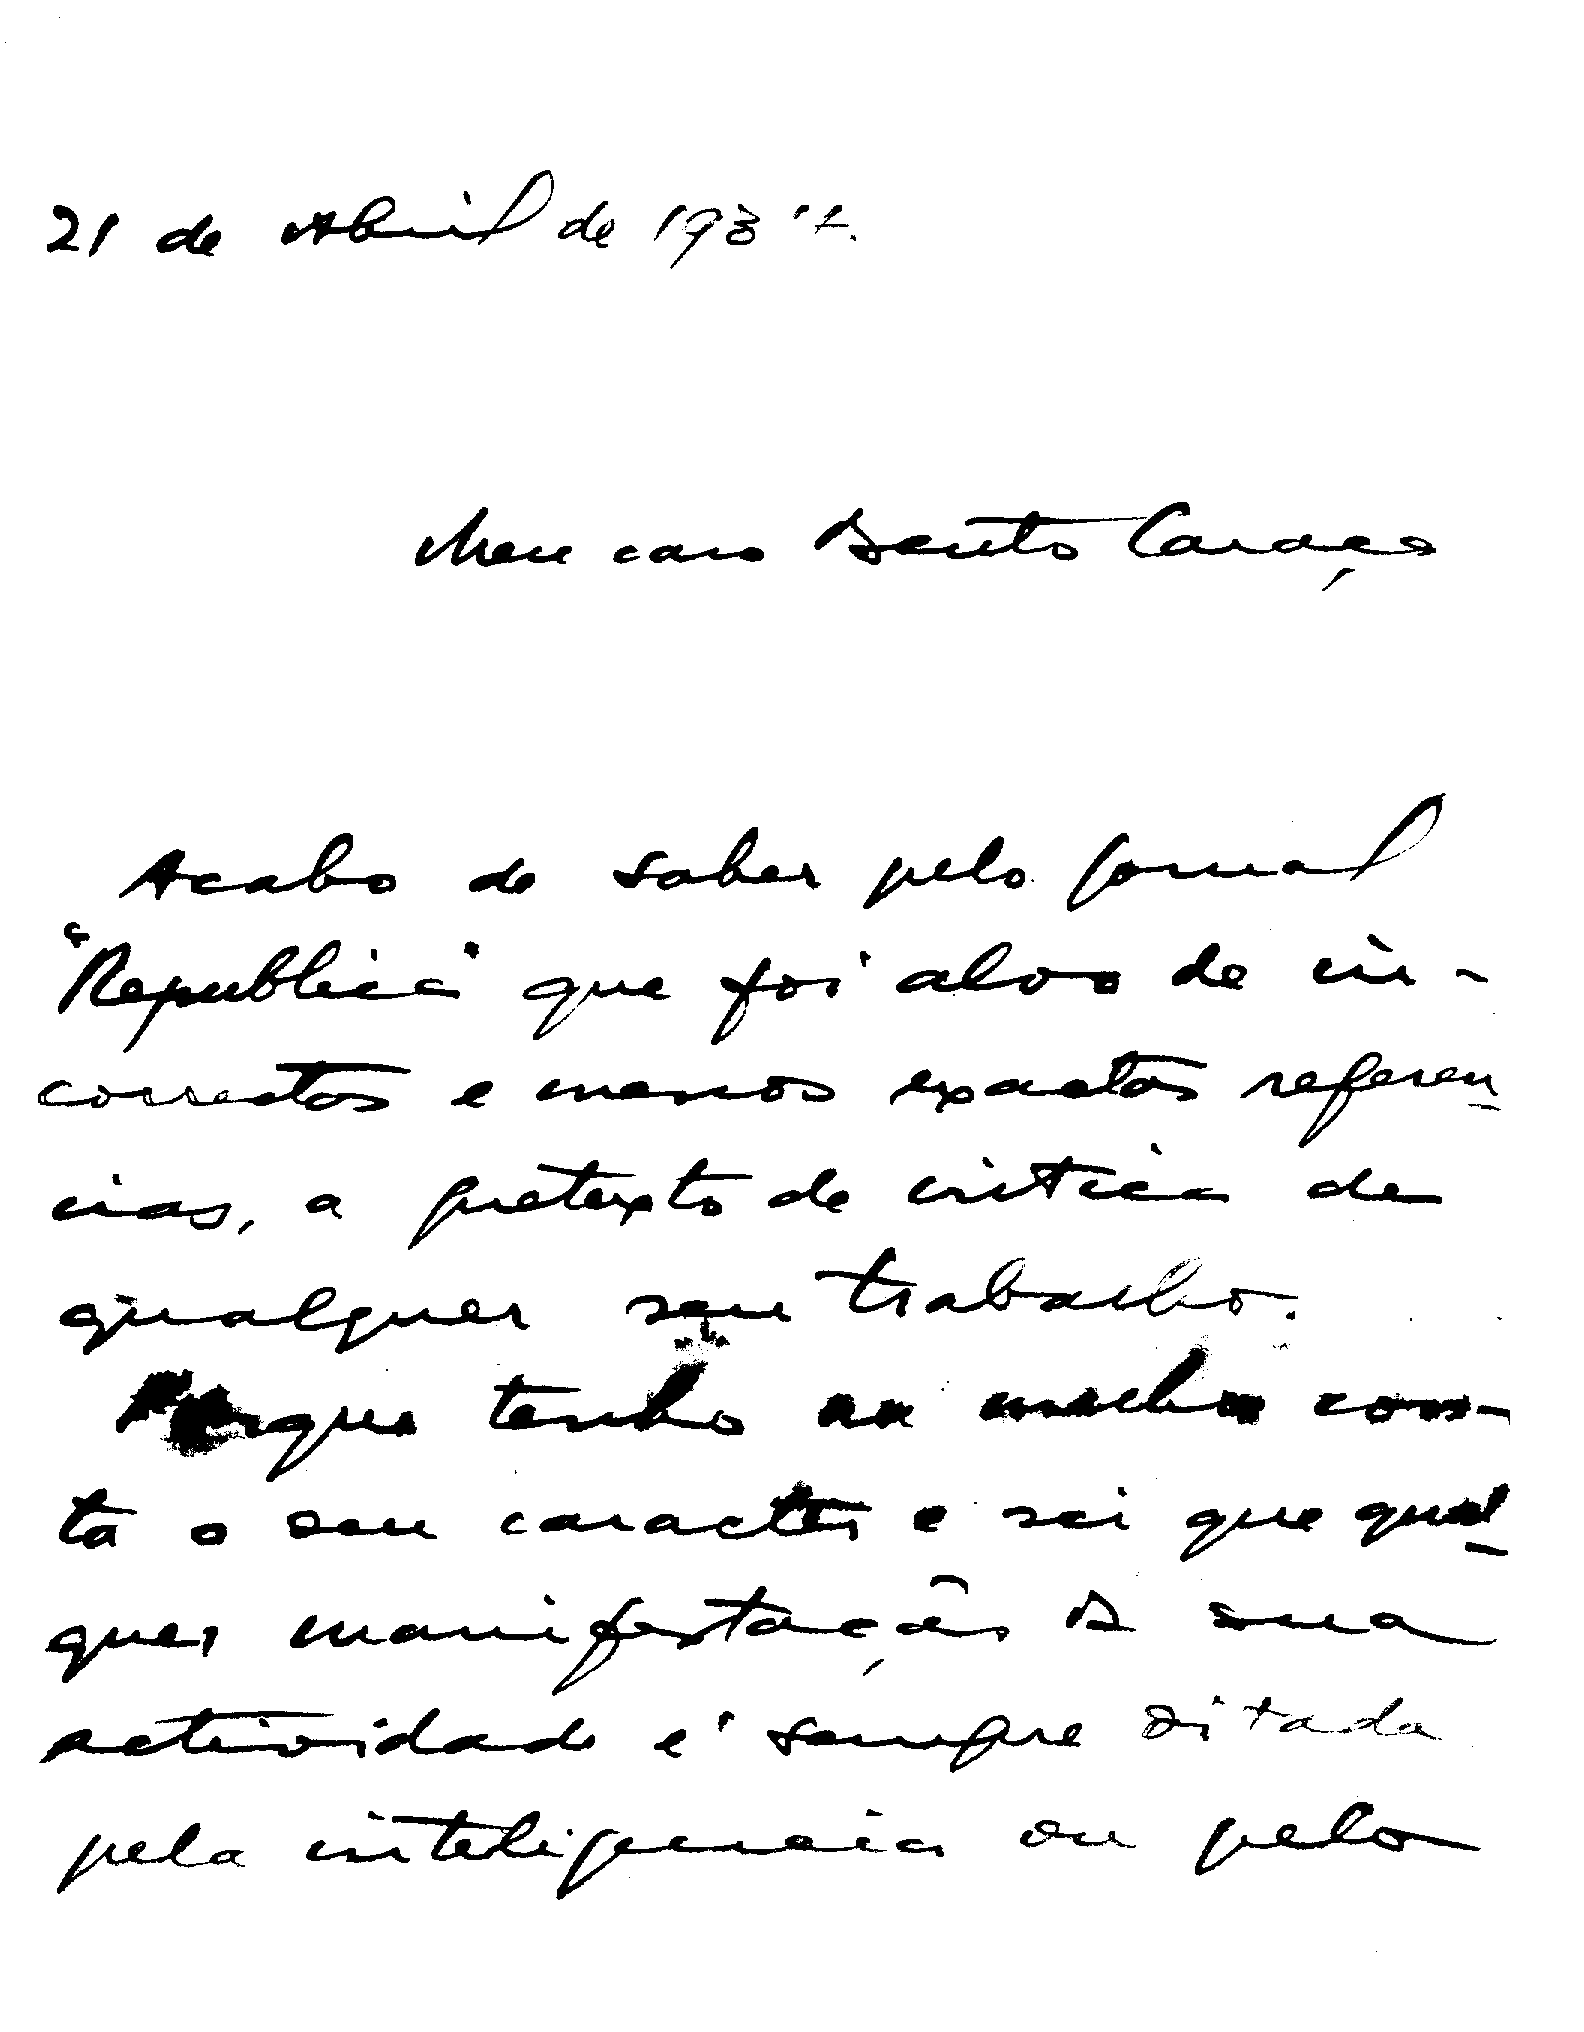 21 de Abril de 1937.
Meu caro Bento Caraça
Acabo de saber pelo jornal
"Republica" que foi alvo de in-
correctas e menos exactas referen-
cias, a pretexto de critica de
qualquer seu trabalho.
Porque tenho na melhor con-
ta o seu caracter e sei que qual-
quer manifestação da sua
actividade é sempre ditada
pela inteligencia ou pelo